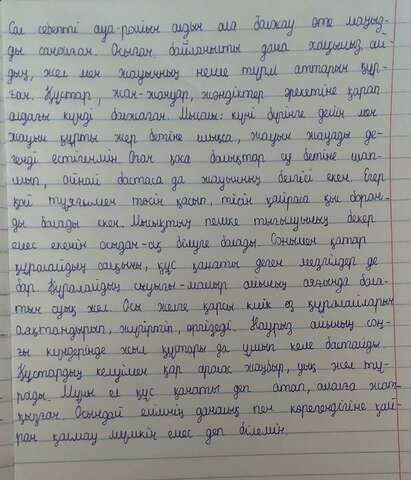 Сол себепті ауа-райын алдын ала болжау өте маңыз-
ды саналған. Осыған байланысты дана халқымыз ай-
дың, жел мен жауынның неше түрлі аттарын құр-
ған. Құстар, жан-жануар, жәндіктер әрекетіне қарап
алдағы күнді болжаған. Мысалы: күні бүгінге дейін мен
жауын құрты жер бетіне шықса, жауын жауады де-
генді естігенмін. Оған қоса балықтар су бетіне шап-
шып, ойнай бастаса да жауынның белгісі екен. Егер
қой тұяғымен төсін қасып, тісін қайраса қы боран-
ды болады екен. Мысықтың пешке тығылуының бекер
емес екенін осыдан-ақ білуге болады. Сонымен қатар
құралайдың салқыны, құс қанаты деген мезгілдер де
бар. Құралайдың суығы-мамыр айының аяғында бола-
тын суық жел. Осы желге қарсы киік өз құралайларын
аяқтандырып, жүгіртіп, өргізеді. Наурыз айының соң-
ғы күндерінде жыл құстары да ұшып келе бастайды.
Құстардың келуімен қар аралас жаңбыр, ызық жел тұ-
рады. Мұны ел құс қанаты деп атап, атаға жат-
қызған. Осындай елімнің даналық пен көрегендігіне қай-
ран қалмау мүмкін емес деп білемін.